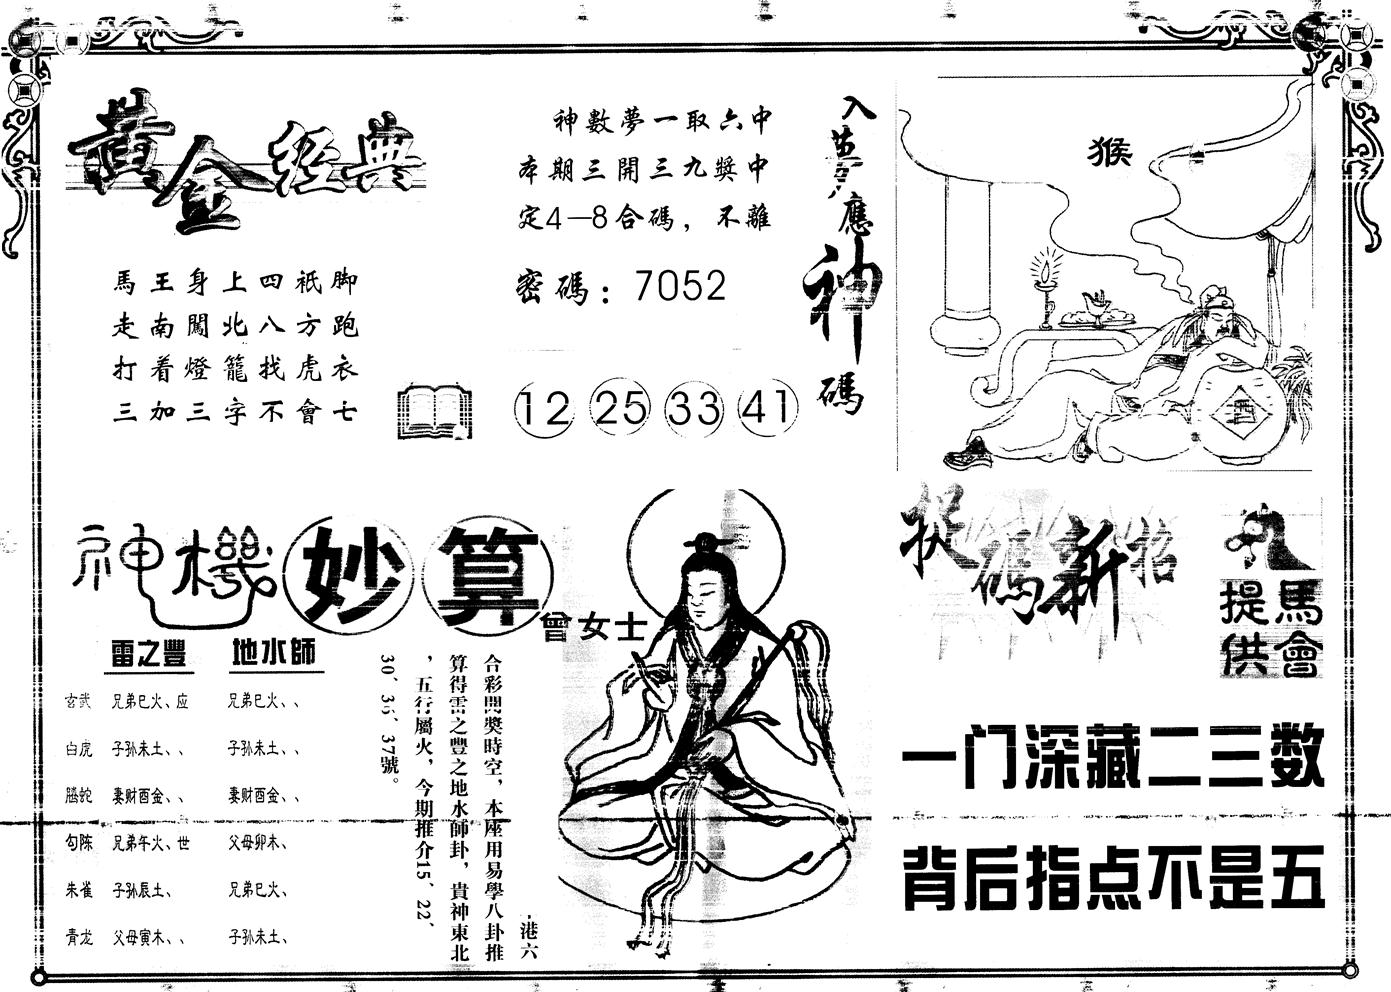 黃金經典
馬王身上四祇脚
走南闖北八方跑
打着燈籠找虎衣
三加三字不會七
神數夢一取六中
本期三開三九獎中
定4—8合碼，不離
密碼：7052
12 25 33 41
入夢應神碼
猴
酒
神機妙算
曾女士
雷之豐 地水師
玄武 兄弟巳火、应 兄弟巳火、、
白虎 子孙未土、、 子孙未土、、
螣蛇 妻财酉金、、 妻财酉金、、
勾陈 兄弟午火、世 父母卯木、
朱雀 子孙辰土、 兄弟巳火、
青龙 父母寅木、、 子孙未土、
港六
合彩開獎時空，本座用易學八卦推
算得雷之豐之地水師卦，貴神東北
，五行屬火，今期推介15、22、
30、36、37號。
捉碼新招
馬會提供
一门深藏二三数
背后指点不是五